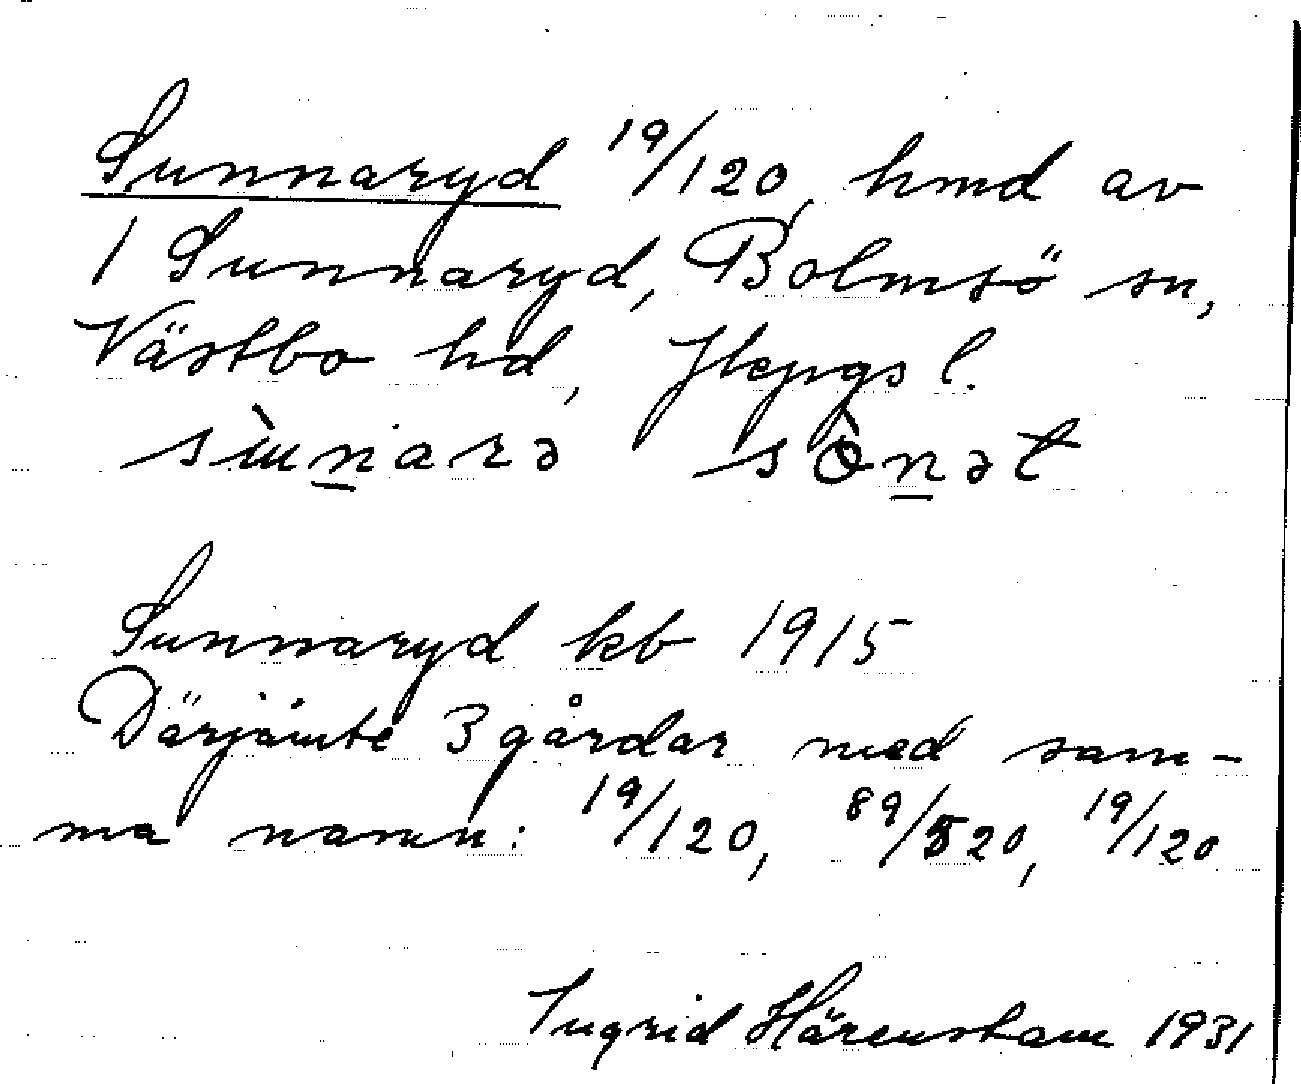 Sunnaryd 19/120 hmd av
1 Sunnaryd, Bolmsö sn,
Västbo hd, Jkpgs l.
Sunnaryd kb 1915
Därjämte 3 gårdar med sam-
ma namn: 19/120, 89/520, 19/120
Ingrid Härenstam 1931